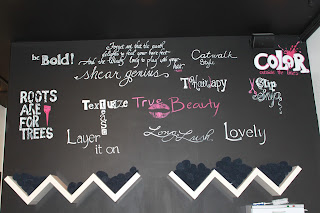 Forget not that the earth
delights to feel your bare feet
And the winds long to play with your
hair
be Bold!
shear genius
Catwalk
Style
COLOR
outside the lines
T Hair apy
Clip
Joynt
ROOTS
ARE
FOR
TREES
Texturize
True Beauty
Layer
it on
Long & Lush
Lovely